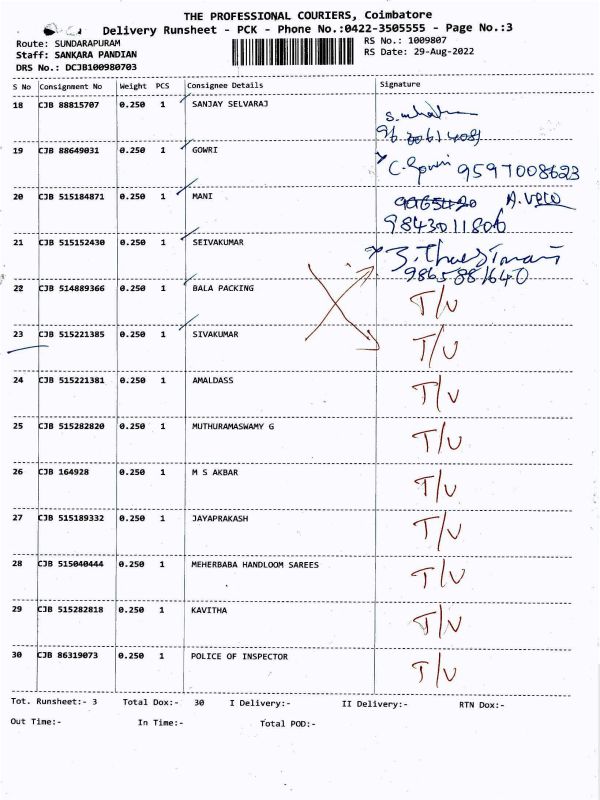 THE PROFESSIONAL COURIERS, Coimbatore
Delivery Runsheet - PCK - Phone No.:0422-3505555 - Page No.:3
Route: SUNDARAPURAM RS No.: 1009807
Staff: SANKARA PANDIAN RS Date: 29-Aug-2022
DRS No.: DCJB100980703
S No Consignment No Weight PCS Consignee Details Signature
18 CJB 88815707 0.250 1 SANJAY SELVARAJ
19 CJB 88649031 0.250 1 GOWRI C. Gowri 9597008623
20 CJB 515184871 0.250 1 MANI
9843011806
21 CJB 515152430 0.250 1 SEIVAKUMAR
9865881640
22 CJB 514889366 0.250 1 BALA PACKING T/U
23 CJB 515221385 0.250 1 SIVAKUMAR T/U
24 CJB 515221381 0.250 1 AMALDASS T/U
25 CJB 515282820 0.250 1 MUTHURAMASWAMY G T/U
26 CJB 164928 0.250 1 M S AKBAR T/U
27 CJB 515189332 0.250 1 JAYAPRAKASH T/U
28 CJB 515040444 0.250 1 MEHERBABA HANDLOOM SAREES T/U
29 CJB 515282818 0.250 1 KAVITHA T/U
30 CJB 86319073 0.250 1 POLICE OF INSPECTOR T/U
Tot. Runsheet:- 3 Total Dox:- 30 I Delivery:- II Delivery:- RTN Dox:-
Out Time:- In Time:- Total POD:-